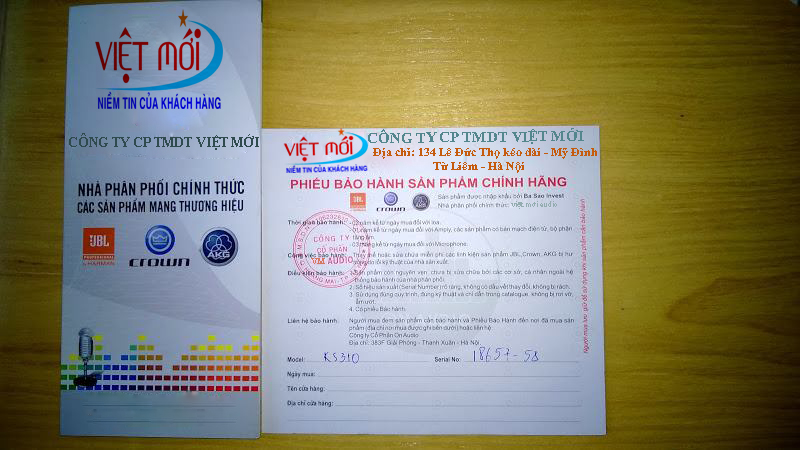 VIỆT MỚI
NIỀM TIN CỦA KHÁCH HÀNG
CÔNG TY CP TMDT VIỆT MỚI
NHÀ PHÂN PHỐI CHÍNH THỨC
CÁC SẢN PHẨM MANG THƯƠNG HIỆU
JBL
PROFESSIONAL
by HARMAN
CROWN
AKG
VIỆT MỚI
NIỀM TIN CỦA KHÁCH HÀNG
CÔNG TY CP TMDT VIỆT MỚI
Địa chỉ: 134 Lê Đức Thọ kéo dài - Mỹ Đình
Từ Liêm - Hà Nội
PHIẾU BẢO HÀNH SẢN PHẨM CHÍNH HÃNG
JBL
CROWN
AKG
Sản phẩm được nhập khẩu bởi Ba Sao Invest
Nhà phân phối chính thức: việt mới audio
Thời gian bảo hành: - 02 năm kể từ ngày mua đối với loa.
- 01 năm kể từ ngày mua đối với Amply, các sản phẩm có bản mạch điện tử, bộ phận
tăng âm.
- 03 tháng kể từ ngày mua đối với Microphone.
Công việc bảo hành: - Thay thế hoặc sửa chữa miễn phí các linh kiện sản phẩm JBL, Crown, AKG bị hư
do lỗi kỹ thuật của nhà sản xuất.
Điều kiện bảo hành: 1. Sản phẩm còn nguyên vẹn, chưa bị sửa chữa bởi các cơ sở, cá nhân ngoài hệ
thống bảo hành của nhà phân phối.
2. Số hiệu sản xuất (Serial Number) rõ ràng, không có dấu vết thay đổi, không bị rách.
3. Sử dụng đúng quy trình, đúng kỹ thuật và chỉ dẫn trong catalogue, không bị rơi vỡ,
ẩm ướt.
4. Có phiếu Bảo hành.
Liên hệ bảo hành: Người mua đem sản phẩm cần bảo hành và Phiếu Bảo Hành đến nơi đã mua sản
phẩm (địa chỉ nơi mua được ghi bên dưới) hoặc liên hệ:
Công ty Cổ Phần On Audio
Địa chỉ: 383F Giải Phóng - Thanh Xuân - Hà Nội
Model: KS310 Serial No: 18657-58
Ngày mua:
Tên cửa hàng:
Địa chỉ cửa hàng:
Người mua lưu giữ để sử dụng khi sản phẩm cần bảo hành
CÔNG TY
CỔ PHẦN
AUDIO